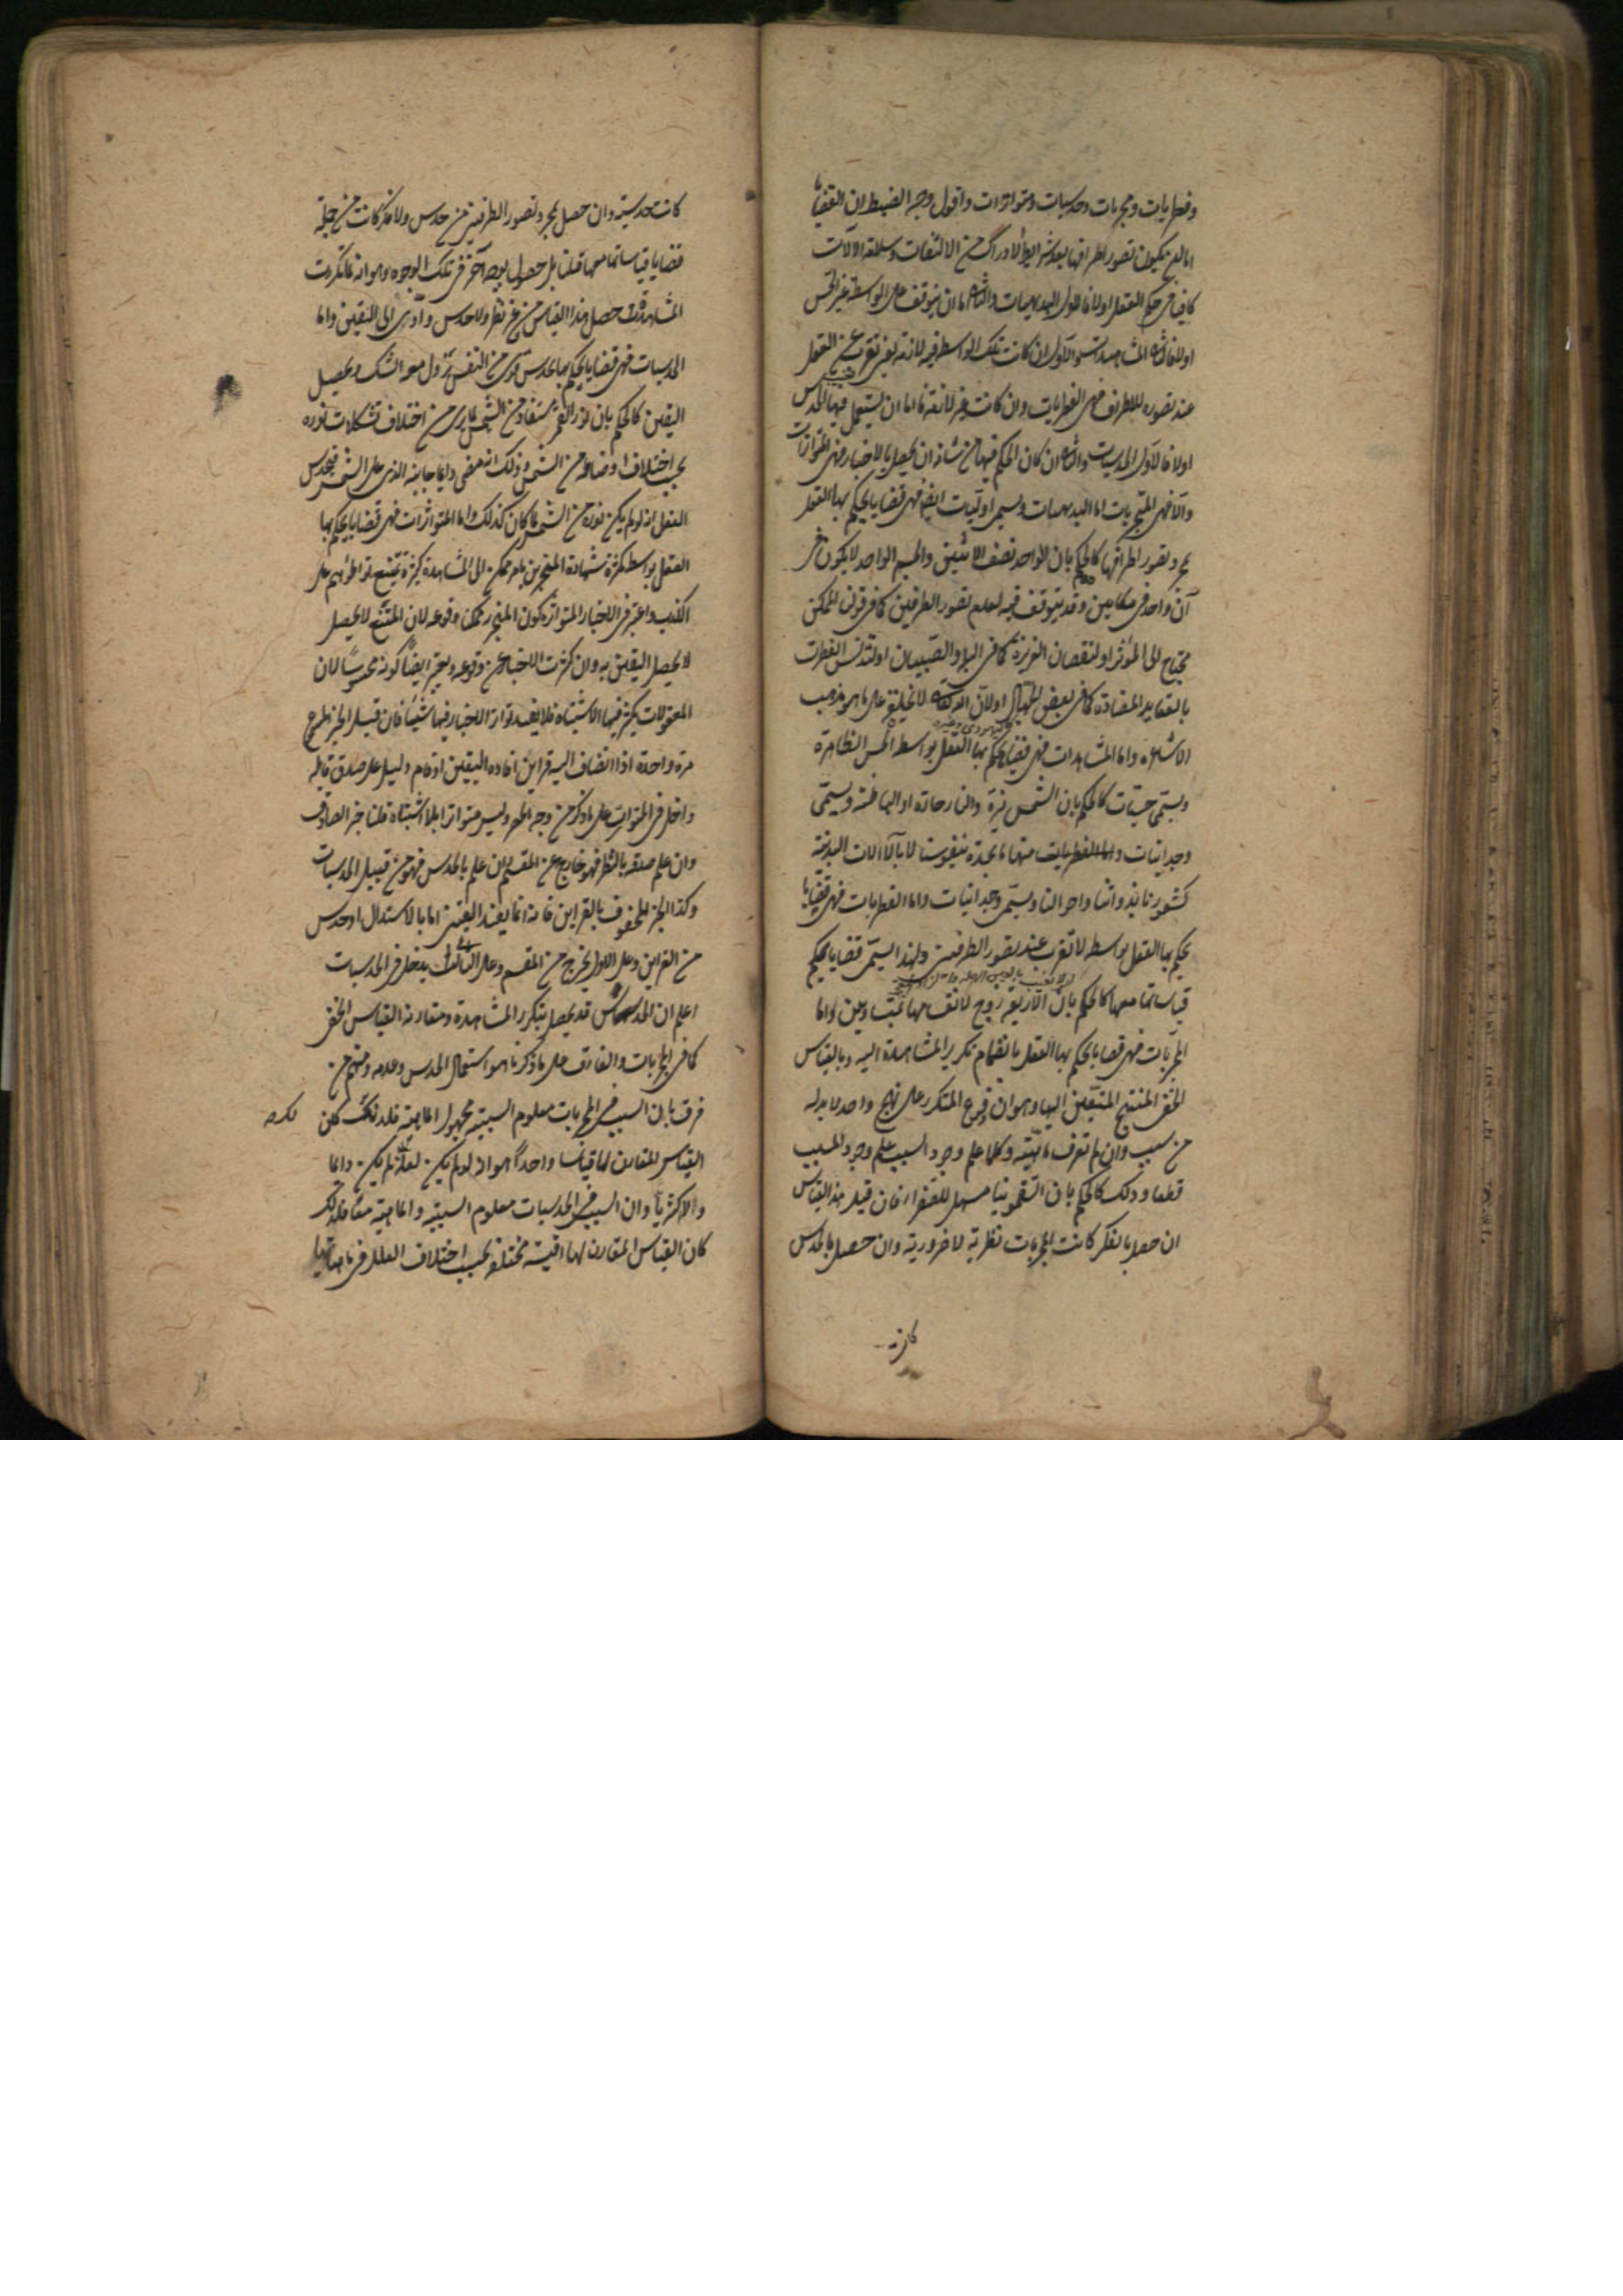 وفطريات ومجربات وحدسيات ومتواترات واقول وجه الضبط ان القضايا
اما ان يكون تصور اطرافها بعد شرايط الادراك من الالتفات وسلامة الالات
كافيا فى حكم العقل اولا فالاول البديهيات والثانى اما ان يتوقف على الواسطة غير الحس
اولا فالثانى المشاهدات والاول ان كانت تلك الواسطة فيه لازمة بغير تعزب عن العقل
عند تصور الاطراف فهى الفطريات وان كانت غير لازمة فاما ان يستعمل فيها الحدس
اولا فالاول الحدسيات والثانى ان كان الحكم فيها من شانه ان يحصل بالاخبار فهى المتواترات
والا فهى المجربات اما البديهيات ويسمى اوليات ايضا فهى قضايا يحكم بها العقل
بمجرد تصور اطرافها كالحكم بان الواحد نصف الاثنين والجسم الواحد لا يكون فى
آن واحد فى مكانين وقد يتوقف فيه لعدم تصور الطرفين كما فى قولنا الممكن
محتاج الى المؤثر او لنقصان الغريزة كما فى البله والصبيان او لتدنس الفطرة
بالعقايد المضادة كما فى بعض الجهال او لان الله تعالى لا يخلقه على ما هو مذهب
الاشاعره واما المشاهدات فهى قضايا يحكم بها العقل بواسطة الحس الظاهرة
ويسمى حسيات كالحكم بان الشمس نيرة والنار حارة او الباطنة ويسمى
وجدانيات واما الفطريات منها ما نجده بنفوسنا لا بالآلات البدنية
كشعورنا بذواتنا واحوالنا ويسمى وجدانيات واما الفطريات فهى قضايا
يحكم بها العقل بواسطة لا تعزب عند تصور الطرفين ولهذا يسمى قضايا
قياساتها معها كالحكم بان الاربعة زوج لانقسامها بمتساويين واما
المجربات فهى قضايا يحكم بها العقل بانضمام تكرير المشاهدة اليه وبالقياس
الخفى المنتج لليقين اليها وهو ان وقوع المتكرر على نهج واحد لا بد له
من سبب وان لم تعرف ماهيته وكلما علم وجود السبب علم وجود المسبب
قطعا وذلك كالحكم بان السقمونيا مسهل للصفراء فان قيل هذا القياس
ان حصل بالفكر كانت المجربات نظرية لا ضرورية وان حصل بالحدس
كانت
كانت حدسية وان حصل بمجرد تصور الطرفين من حدس ولا فكر كانت من جملة
قضايا قياساتها معها قلنا بل حصول بوجه آخر فى تلك الوجوه وهو انه لما تكررت
المشاهدات حصل هذا القياس من غير نظر ولا حدس وادى الى اليقين واما
الحدسيات فهى قضايا يحكم بها بحدس قوى من النفس يزول معه الشك ويحصل
اليقين كالحكم بان نور القمر مستفاد من الشمس لما يرى من اختلاف تشكلات نوره
بحسب اختلاف اوضاعه من الشمس وذلك انه يضىء دايما جانبه الذى يلى الشمس فيحدس
العقل انه لو لم يكن نوره من الشمس لما كان كذلك واما المتواترات فهى قضايا يحكم بها
العقل بواسطة كثرة شهادة المخبرين بامر ممكن الى المشاهدة كثرة يمتنع تواطؤهم على
الكذب واعتبر فى الاخبار المتواترة كون المخبر ممكنا وقوعه لان الممتنع لا يحصل
لا يحصل اليقين به وان كثرت الاخبار عن وقوعه ويعتبر ايضا كونه محسوسا لان
المعقولات يكثر فيها الاشتباه فلا يفيد تواتر الاخبار فيها شيئا فان قيل الخبر المسموع
مرة واحدة اذا انضاف اليه قراين افاده اليقين او قام دليل على صدق قايله
داخل فى المتواترات على ما ذكر من وجه الحصر وليس متواترا بلا اشتباه قلنا خبر الصادق
وان علم صدقه بالنظر فهو خارج عن المقسم وان علم بالحدس فهو من قبيل الحدسيات
وكذا الخبر المحفوف بالقراين فانه انما يفيد اليقين اما بالاستدلال او حدس
من القراين وعلى الاول يخرج من المقسم وعلى الثانى يدخل فى الحدسيات
اعلم ان الحدس قد يحصل بتكرر المشاهدة ومقارنة القياس الخفى
كما فى المجربات والفارق على ما ذكرنا هو استعمال الحدس وعدمه ومنهم من
فرق بان السبب فى المجربات معلوم السببية مجهول الماهية فلذلك كان
القياس المقارن لها قياسا واحدا هو انه لو لم يكن لعلة لم يكن دايما
والاكثريا وان السبب فى الحدسيات معلوم السببية والماهية معا فلذلك
كان القياس المقارن لها اقيسة مختلفة بحسب اختلاف العلل فى ماهياتها